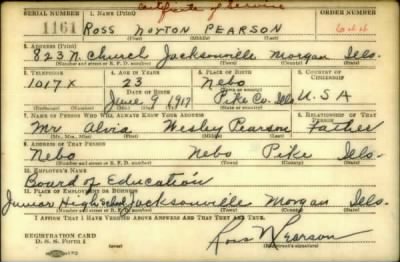 Certificate of Service
SERIAL NUMBER 1. NAME (Print) ORDER NUMBER
1161 ROSS DOYTON PEARSON
5. ADDRESS (Print)
823 N. Church Jacksonville Morgan Ills.
(Number and street or R. F. D. number) (Town) (County) (State)
3. TELEPHONE 4. AGE IN YEARS 5. PLACE OF BIRTH 6. COUNTRY OF CITIZENSHIP
1017X 23 Nebo
DATE OF BIRTH
June 9 1917 Pike Co. Ills U.S.A
7. NAME OF PERSON WHO WILL ALWAYS KNOW YOUR ADDRESS 8. RELATIONSHIP OF THAT PERSON
Mr. Alvia Wesley Pearson Father
(Mr., Mrs., Miss) (First) (Middle) (Last)
9. ADDRESS OF THAT PERSON
Nebo Nebo Pike Ills.
(Number and street or R. F. D. number) (Town) (County) (State)
10. EMPLOYER'S NAME
Board of Education
11. PLACE OF EMPLOYMENT OR BUSINESS
Junior High School Jacksonville Morgan Ills.
(Number and street or R. F. D. number) (Town) (County) (State)
I AFFIRM THAT I HAVE VERIFIED ABOVE ANSWERS AND THAT THEY ARE TRUE.
REGISTRATION CARD
D. S. S. Form 1
Ross Pearson
(Registrant's signature)